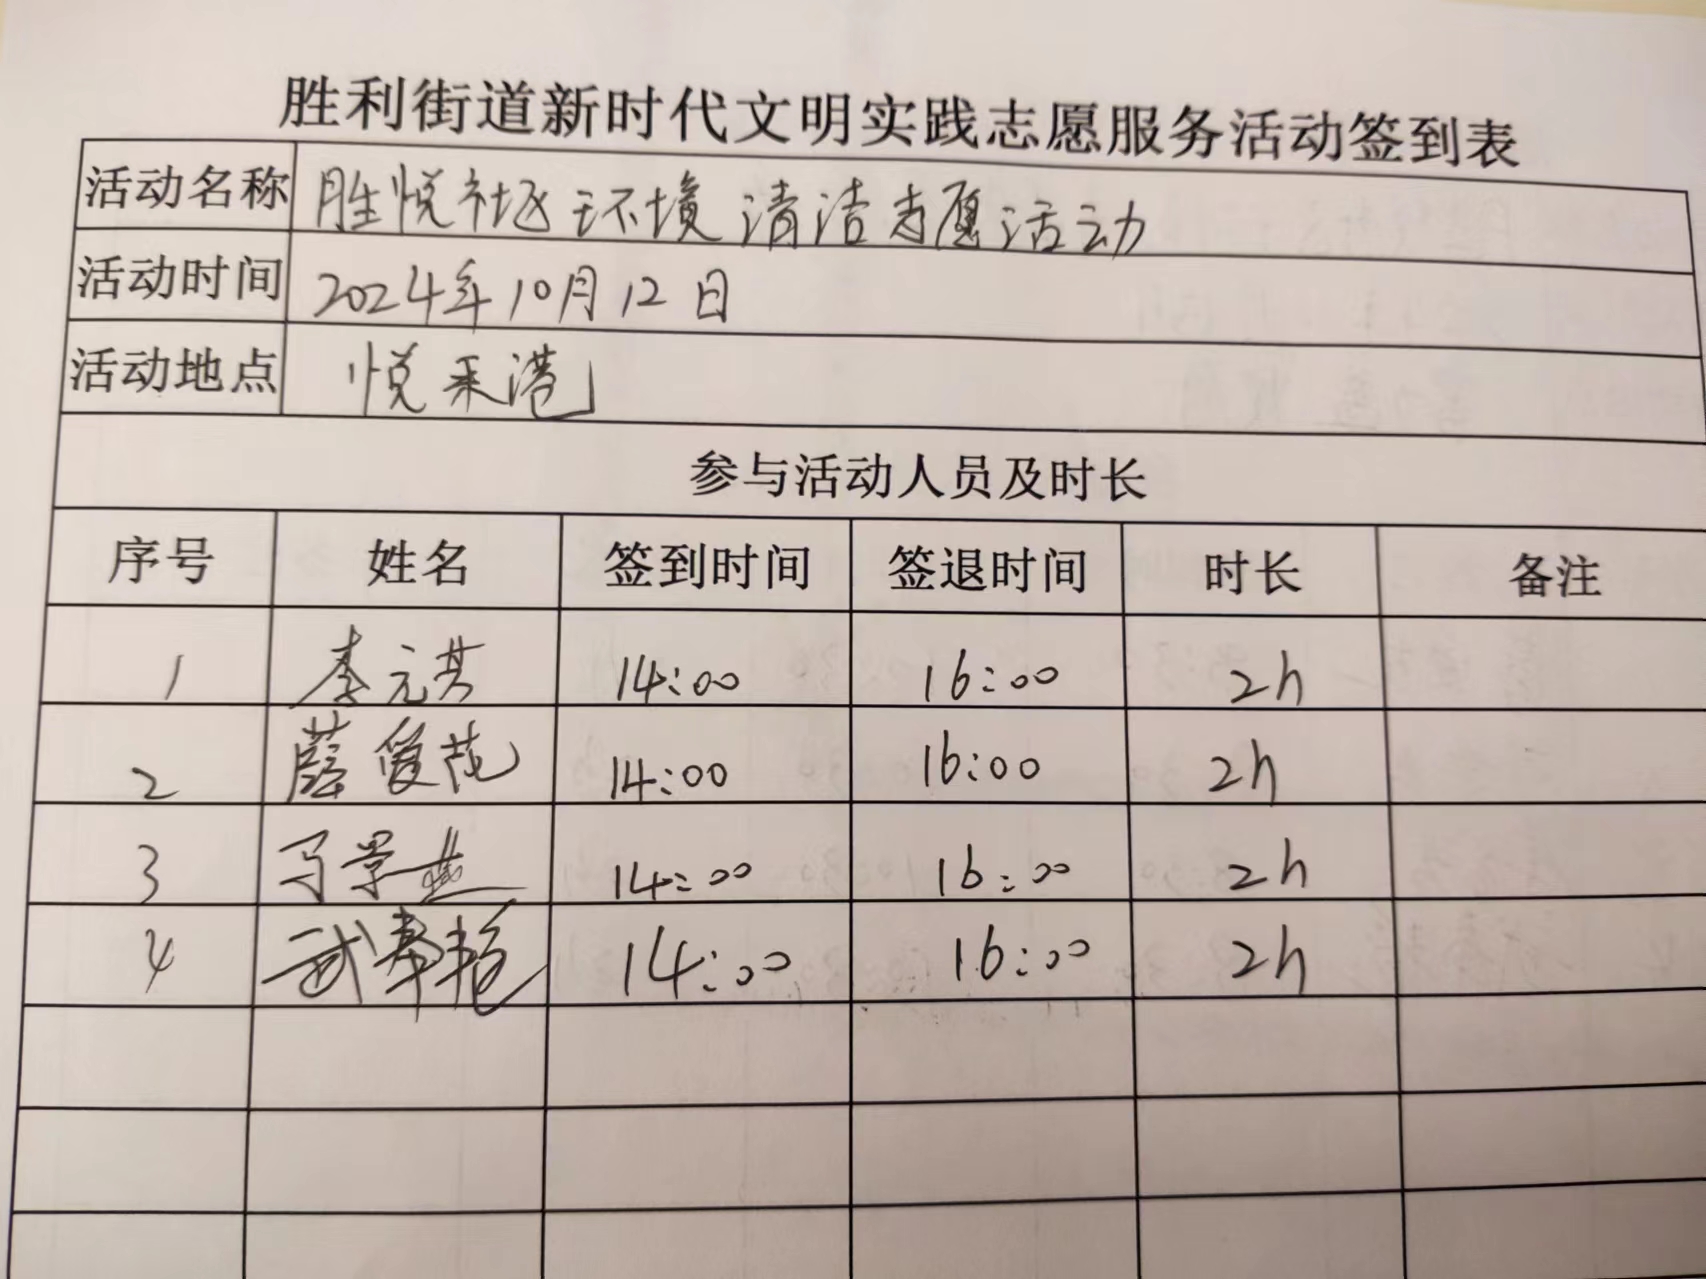 胜利街道新时代文明实践志愿服务活动签到表
活动名称 胜悦社区环境清洁志愿活动
活动时间 2024年10月12日
活动地点 悦来港
参与活动人员及时长
序号 姓名 签到时间 签退时间 时长 备注
1 李元芬 14:00 16:00 2h
2 薛爱花 14:00 16:00 2h
3 14:00 16:00 2h
4 武春艳 14:00 16:00 2h